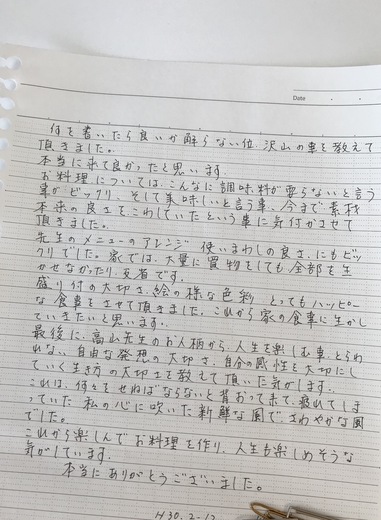 Date
何を書いたら良いか解らない位、沢山の事を教えて
頂きました。
本当に来て良かったと思います。
お料理については、こんなに調味料が要らないと言う
事がビックリ、そして美味しいと言う事、今まで素材
本来の良さをこわしていたという事に気付かせて
頂きました。
先生のメニューのアレンジ 使いまわしの良さ、にもビッ
クリでした。家では、大量に買物をしても全部を生
かせなかったり、反省です。
盛り付の大切さ、絵の様な色彩 とってもハッピー
な食事をさせて頂きました。これから家の食事に生かし
ていきたいと思います。
最後に、高山先生のお人柄から、人生を楽しむ事、とらわ
れない自由な発想の大切さ、自分の感性を大切にし
ていく生き方の大切さを教えて頂いた気がします。
これは、何々をせねばならないと背おって来て、疲れてしま
っていた 私の心に吹いた新鮮な風で、さわやかな風
でした。
これから楽しんでお料理を作り、人生も楽しめそうな
気がしています。
本当にありがとうございました。
H30.2-12